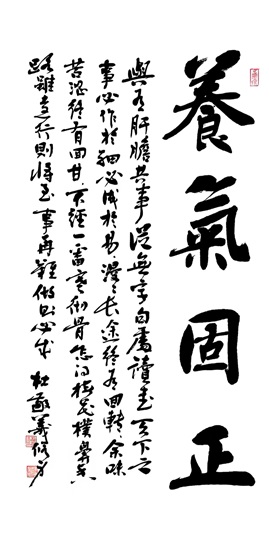 養氣固正
與有肝膽共事從無字句處讀書天下之
事必作於細必成於易漫漫長途終有回轉余味
苦澀終有回甘不經一番寒徹骨怎得梅花撲鼻香
路雖遠行則將至事再難做則必成 杜